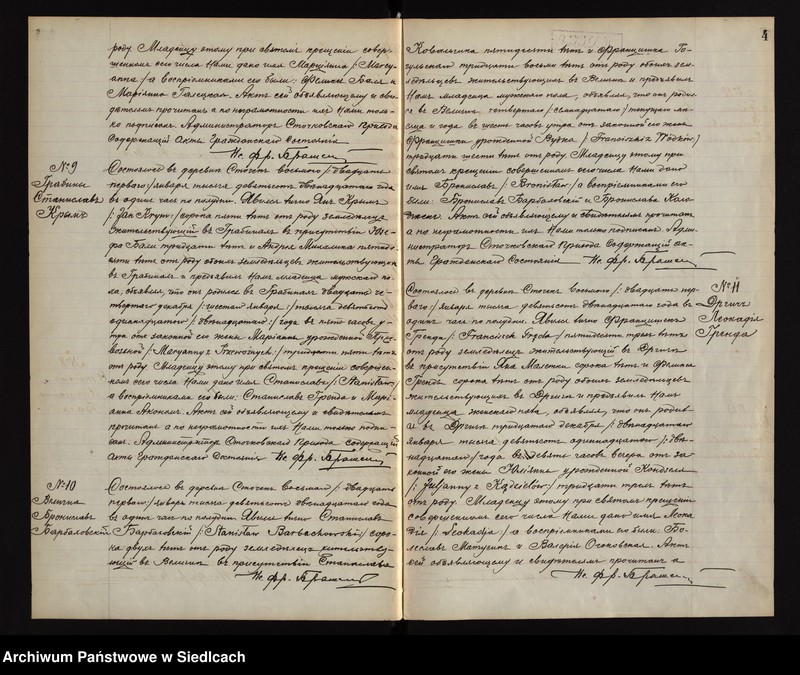 роду. Младенцу этому при святомъ крещеніи совер-
шенномъ сего числа Нами дано имя Марціянна /: Marcy-
anna :/ а воспріемниками его были: Феликсъ Баля и
Маріянна Галецкая. Актъ сей объявляющему и сви-
дѣтелямъ прочитанъ а по неграмотности ихъ Нами толь-
ко подписанъ. Администраторъ Сточковскаго Прихода
Содержащій Акты Гражданскаго Состоянія
Кс. Фр.
№ 9
Грабины
Станиславъ
Крымъ
Состоялось въ деревнѣ Стоčекъ восьмаго /: двадцать
перваго:/ января тысяча девятьсотъ двѣнадцатаго года
въ одинъ часъ по полудни. Явился лично Янъ Крымъ
/: Jan Krym :/ сорока пяти лѣтъ отъ роду земледѣлецъ
жительствующій въ Грабинахъ въ присутствіи Юзе-
фа Бали тридцати лѣтъ и Андрея Михалика пятиде-
сяти лѣтъ отъ роду обоихъ земледѣльцевъ жительствующихъ
въ Грабинахъ и предъявилъ Намъ младенца мужескаго по-
ла, объявляя, что онъ родился въ Грабинахъ двадцать че-
твертаго декабря /: шестаго января :/ тысяча девятьсотъ
одиннадцатаго /: двѣнадцатаго :/ года въ пять часовъ у-
тра отъ законной его жены Маріанны урожденной
тридцати пяти лѣтъ
отъ роду. Младенцу этому при святомъ крещеніи совершен-
номъ сего числа Нами дано имя Станиславъ /: Stanisław :/
а воспріемниками его были: Станиславъ Гренда и Марі-
анна Акономъ. Актъ сей объявляющему и свидѣтелямъ
прочитанъ а по неграмотности ихъ Нами только подпи-
санъ. Администраторъ Сточковскаго Прихода содержащій
Акты Гражданскаго Состоянія Кс. Фр.
№ 10
Велигня
Брониславъ
Барбаховскій
Состоялось въ деревнѣ Стоčекъ Восьмаго /: двадцать
перваго :/ января тысяча девятьсотъ двѣнадцатаго года
въ одинъ часъ по полудни. Явился лично Станиславъ
Барбаховскій /: Stanisław Barbachowski :/ соро-
ка двухъ лѣтъ отъ роду земледѣлецъ жительству-
ющій въ Велигнѣ въ присутствіи Станислава
Кс. Фр.
4
Ковальчика пятидесяти лѣтъ и Францишка Го-
тридцати восьми лѣтъ отъ роду обоихъ зем-
ледѣльцевъ жительствующихъ въ Велигнѣ и предъявилъ
Намъ младенца мужескаго пола, объявляя, что онъ родил-
ся въ Велигнѣ четвертаго /: семнадцатаго :/ текущаго мѣ-
сяца и года въ шесть часовъ утра отъ законной его жены
Францишки урожденной Вудка /: Franciszka Wódka :/
тридцати шести лѣтъ отъ роду. Младенцу этому при
святомъ крещеніи совершенномъ сего числа Нами дано
имя Брониславъ /: Bronisław :/ а воспріемниками его
были: Брониславъ Барбаховскій и Бронислава
Актъ сей объявляющему и свидѣтелямъ прочитанъ
а по неграмотности ихъ Нами только подписанъ. Адми-
нистраторъ Сточковскаго Прихода Содержащій Ак-
ты Гражданскаго Состоянія Кс. Фр.
№ 11
Дргичъ
Леокадія
Гренда
Состоялось въ деревнѣ Стоčекъ Восьмаго /: двадцать пер-
ваго :/ января тысяча девятьсотъ двѣнадцатаго года въ
одинъ часъ по полудни. Явился лично Францишекъ
Гренда /: Franciszek Gręda :/ пятидесяти трехъ лѣтъ
отъ роду земледѣлецъ жительствующій въ Дргичѣ
въ присутствіи Яна сорока лѣтъ и Феликса
Гренды сорока лѣтъ отъ роду обоихъ земледѣльцевъ
жительствующихъ въ Дргичѣ и предъявилъ Намъ
младенца женскаго пола, объявляя, что онъ родил-
ся въ Дргичѣ тридцатаго декабря /: двѣнадцатаго
января тысяча девятьсотъ одиннадцатаго /: двѣ-
надцатаго :/ года въ девять часовъ вечера отъ за-
конной его жены Юліанны урожденной
/: Juljanny z :/ тридцати трехъ лѣтъ
отъ роду. Младенцу этому при святомъ крещеніи
совершенномъ сего числа Нами дано имя Леока-
дія /: Leokadja :/ а воспріемниками его были: Бо-
леславъ и Валерія Огоновская. Актъ
сей объявляющему и свидѣтелямъ прочитанъ а
Кс. Фр.
Archiwum Państwowe w Siedlcach